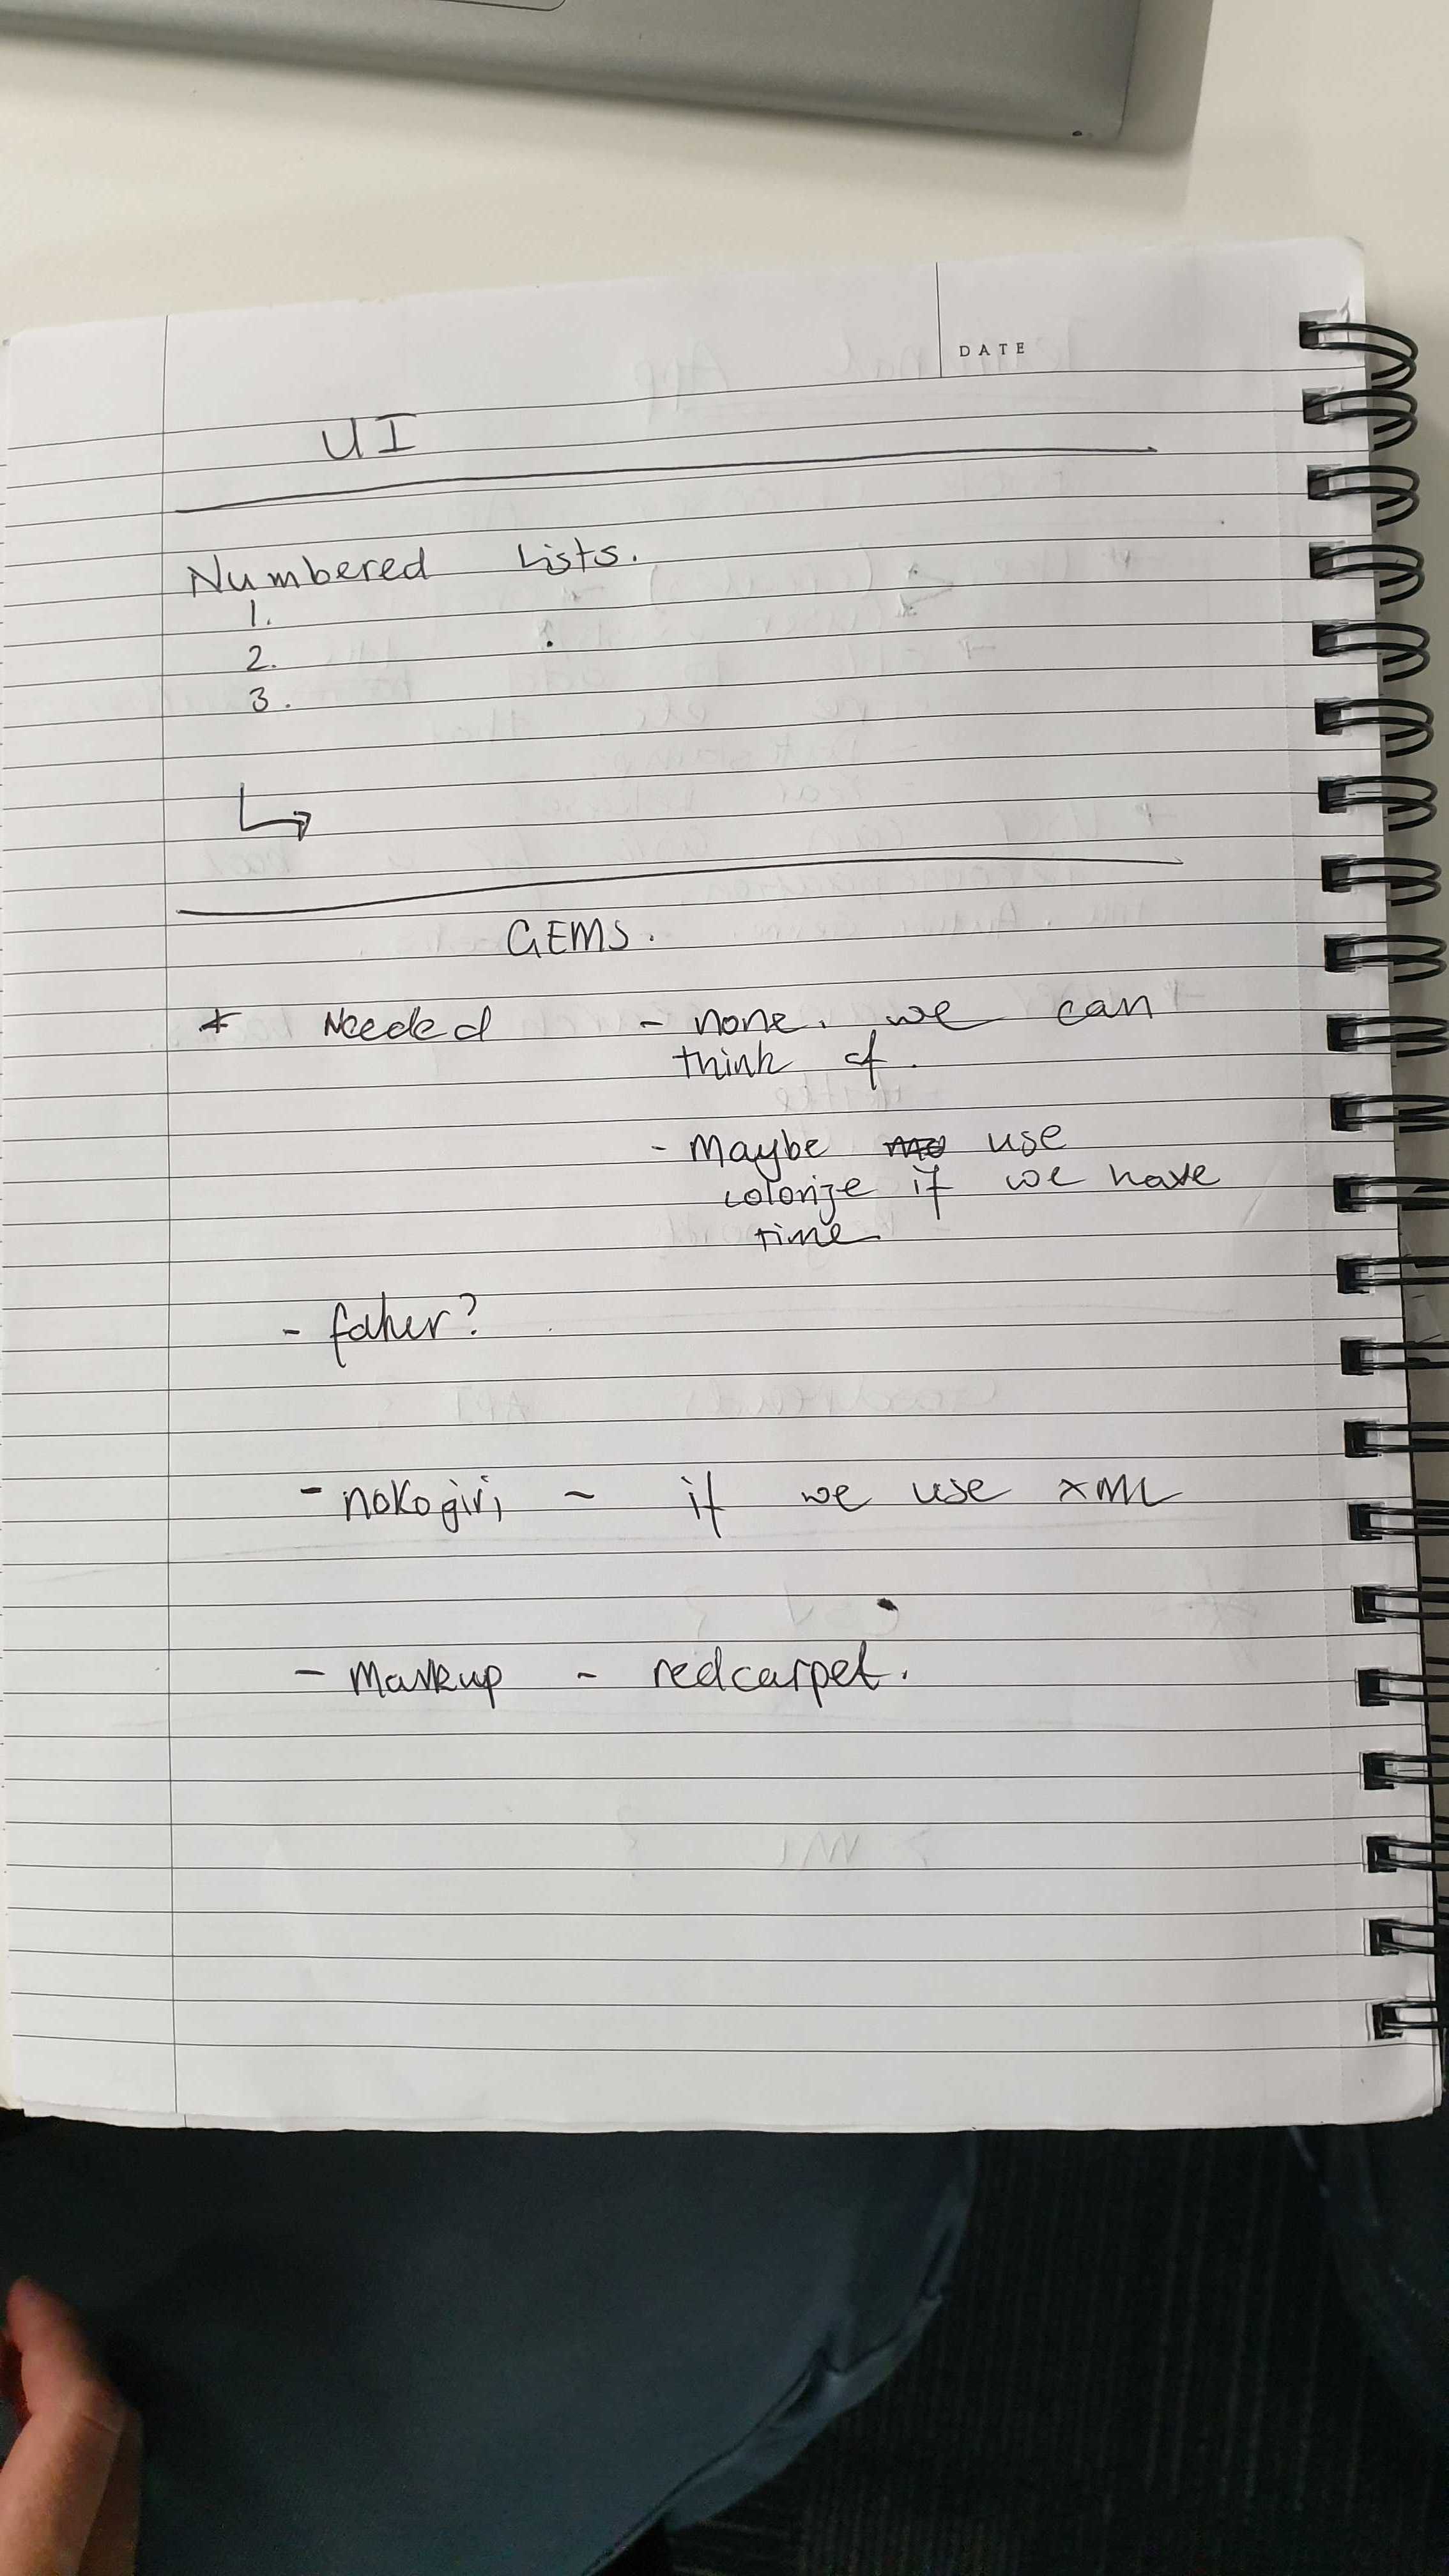 DATE
UI
Numbered Lists.
1.
2.
3.
GEMS.
* Needed - none. we can
think of.
- Maybe use
colorize if we have
time.
- faker?
- nokogiri - if we use XML
- Markup - redcarpet.